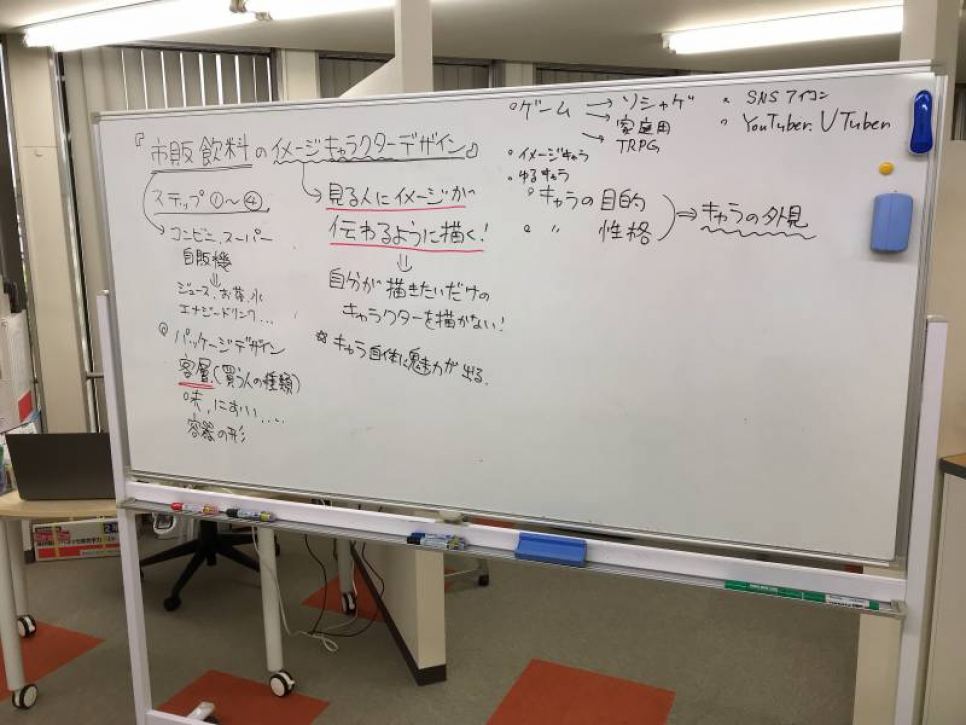 『市販飲料のイメージキャラクターデザイン』
ステップ①〜④
コンビニ、スーパー
自販機
⇓
ジュース、お茶、水
エナジードリンク...
◎パッケージデザイン
客層、(買う人の種類)
味、におい....
容器の形
見る人にイメージが
伝わるように描く!
⇓
自分が描きたいだけの
キャラクターを描かない!
☆キャラ自体に魅力が出る。
°ゲーム→ソシャゲ
→家庭用
→TRPG
°イメージキャラ
°ゆるキャラ
°キャラの目的
° 〃 性格
⇒キャラの外見
°SNSアイコン
°YouTuber. VTuber